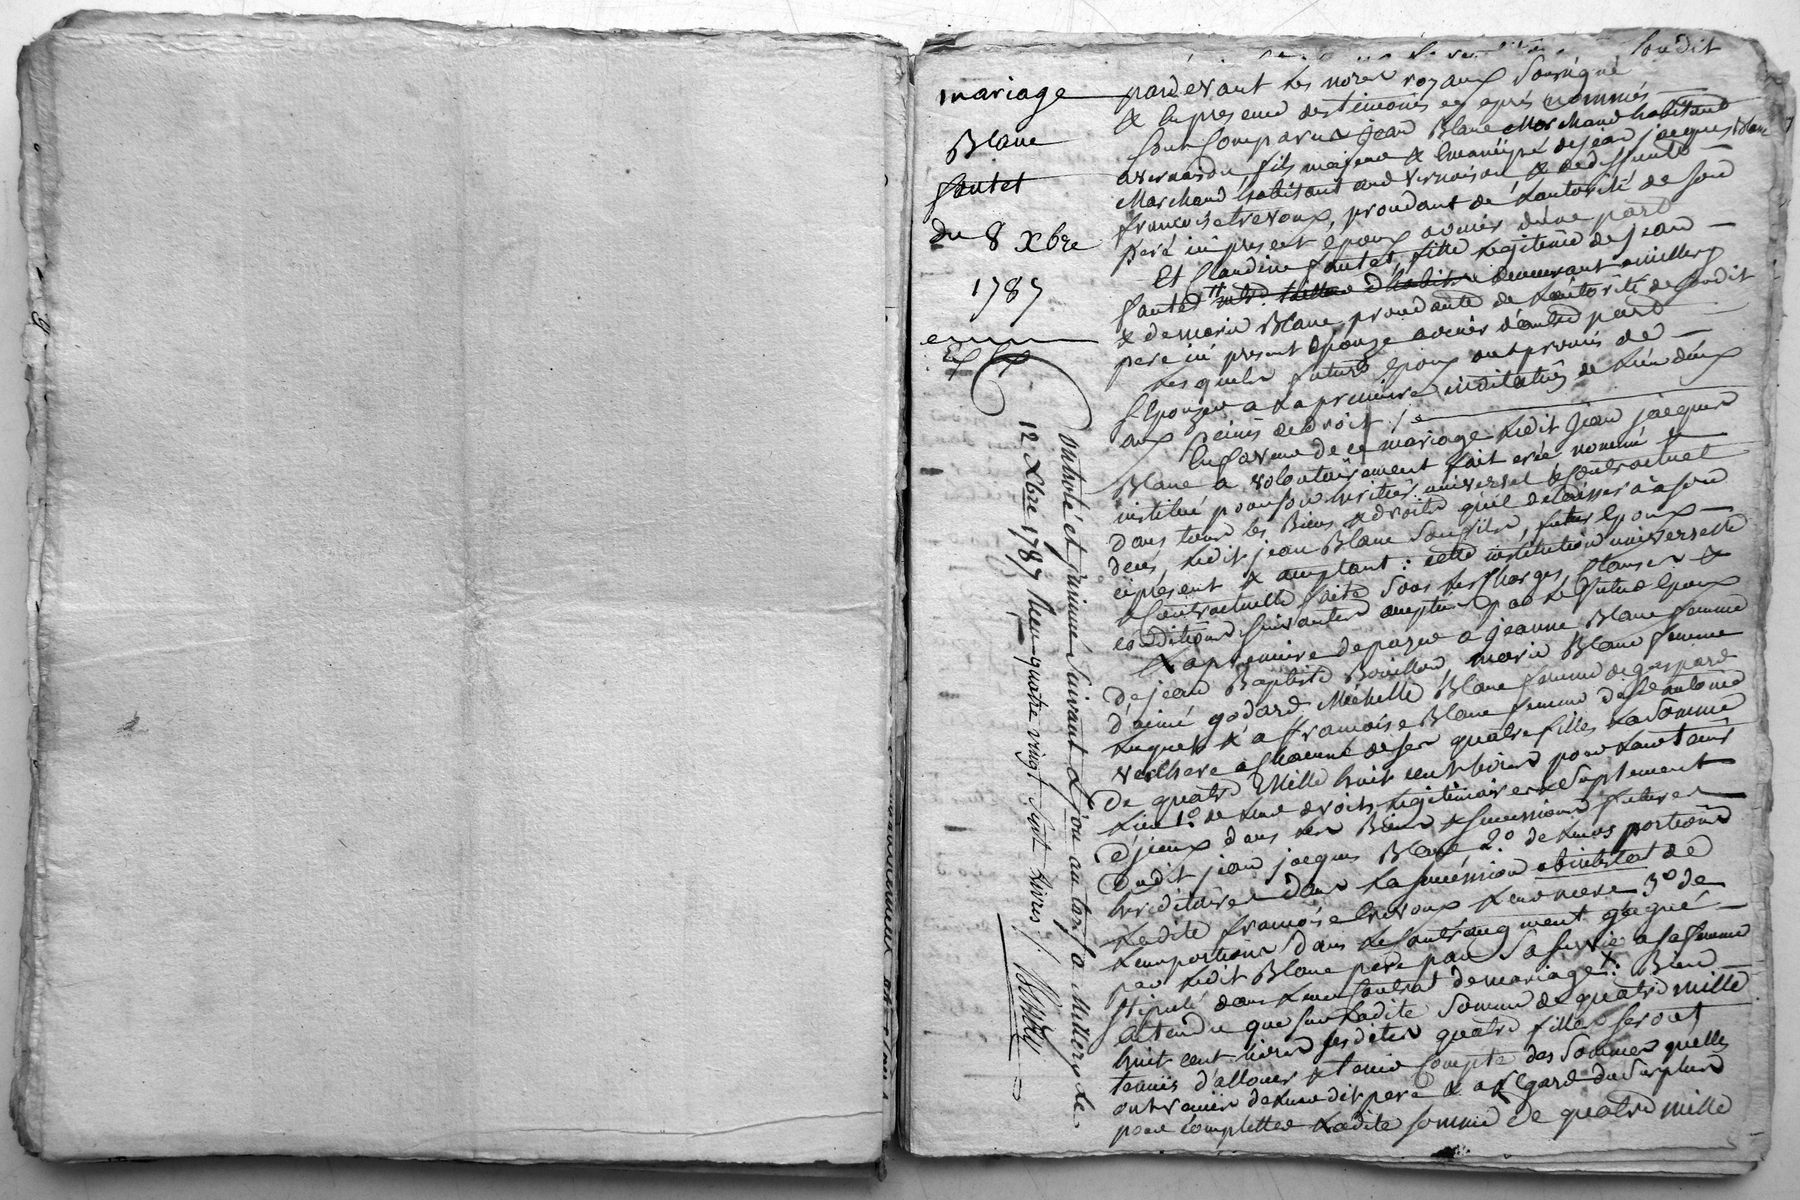 mariage
Blanc
fautet
du 8 Xbre
1787
Controlé et insinué suivant L'son au tarif a Millery le
12 Xbre 1787 Reçu quatre vingt sept Livres
Soudit
pardevant Les nores royaux Soussigné
& en presence des temoins cy après nommés
Sont Comparus jean Blanc Marchand habitant
a vernaison fils majeur & Emancipé de jean jacques Blanc
Marchand habitant aud vernaison & de deffunte
francoise trevoux, procedant de L'autorité de Son
pere icy present Epoux avenir d'une part
Et Claudine fautet fille Legitime de jean
fautet demeurant a millery
& de marie Blanc procedante de L'autorité de Soudit
pere icy present Epouze avenir d'autre part
Lesquels futurs Epoux ont promis de
S'Epouzer a La premiere invitation de L'un d'eux
aux peines de droit
En faveur de ce mariage Ledit jean jacques
Blanc a volontairement fait créé nommé &
institué pour Son heritier universel & Contractuel
dans tous les Biens & droits qu'il delaissera a Son
deces, Ledit jean Blanc Son fils, futur Epoux
cy present & acceptant : cette institution universelle
& Contractuelle faite Sous les Charges, Clauses &
conditions Suivantes acceptées par Le futur Epoux
La premiere de payer a jeanne Blanc femme
de jean Baptiste Bouillon, marie Blanc femme
d'aimé godard Michelle Blanc femme de gaspard
Luquet & a francoise Blanc femme de antoine
verchere a Chacune de Ses quatre filles La Somme
de quatre Mille huit cent Livres pour Leur tenir
Lieu 1.º de Leur droits Legitimaires & Suplement
d'jceux dans Les Biens & Successions futures
dudit jean jacques Blanc 2.º de Leurs portions
hereditaires dans La Succession abintestat de
Ladite francoise trevoux Leur mere 3.º de
Leur portions dans Le Contraugment gagné
par Ledit Blanc pere par Sa Survie a Sa femme
Stipulé dans Leur Contrat de mariage : Bien
Entendu que Sur Ladite Somme de quatre mille
huit cent Livres Lesdites quatre filles Seront
tenües d'allouer & tenir Compte des Sommes quelles
ont reçües de Leurdit pere & a L'Egard du Surplus
pour completter Ladite Somme de quatre mille